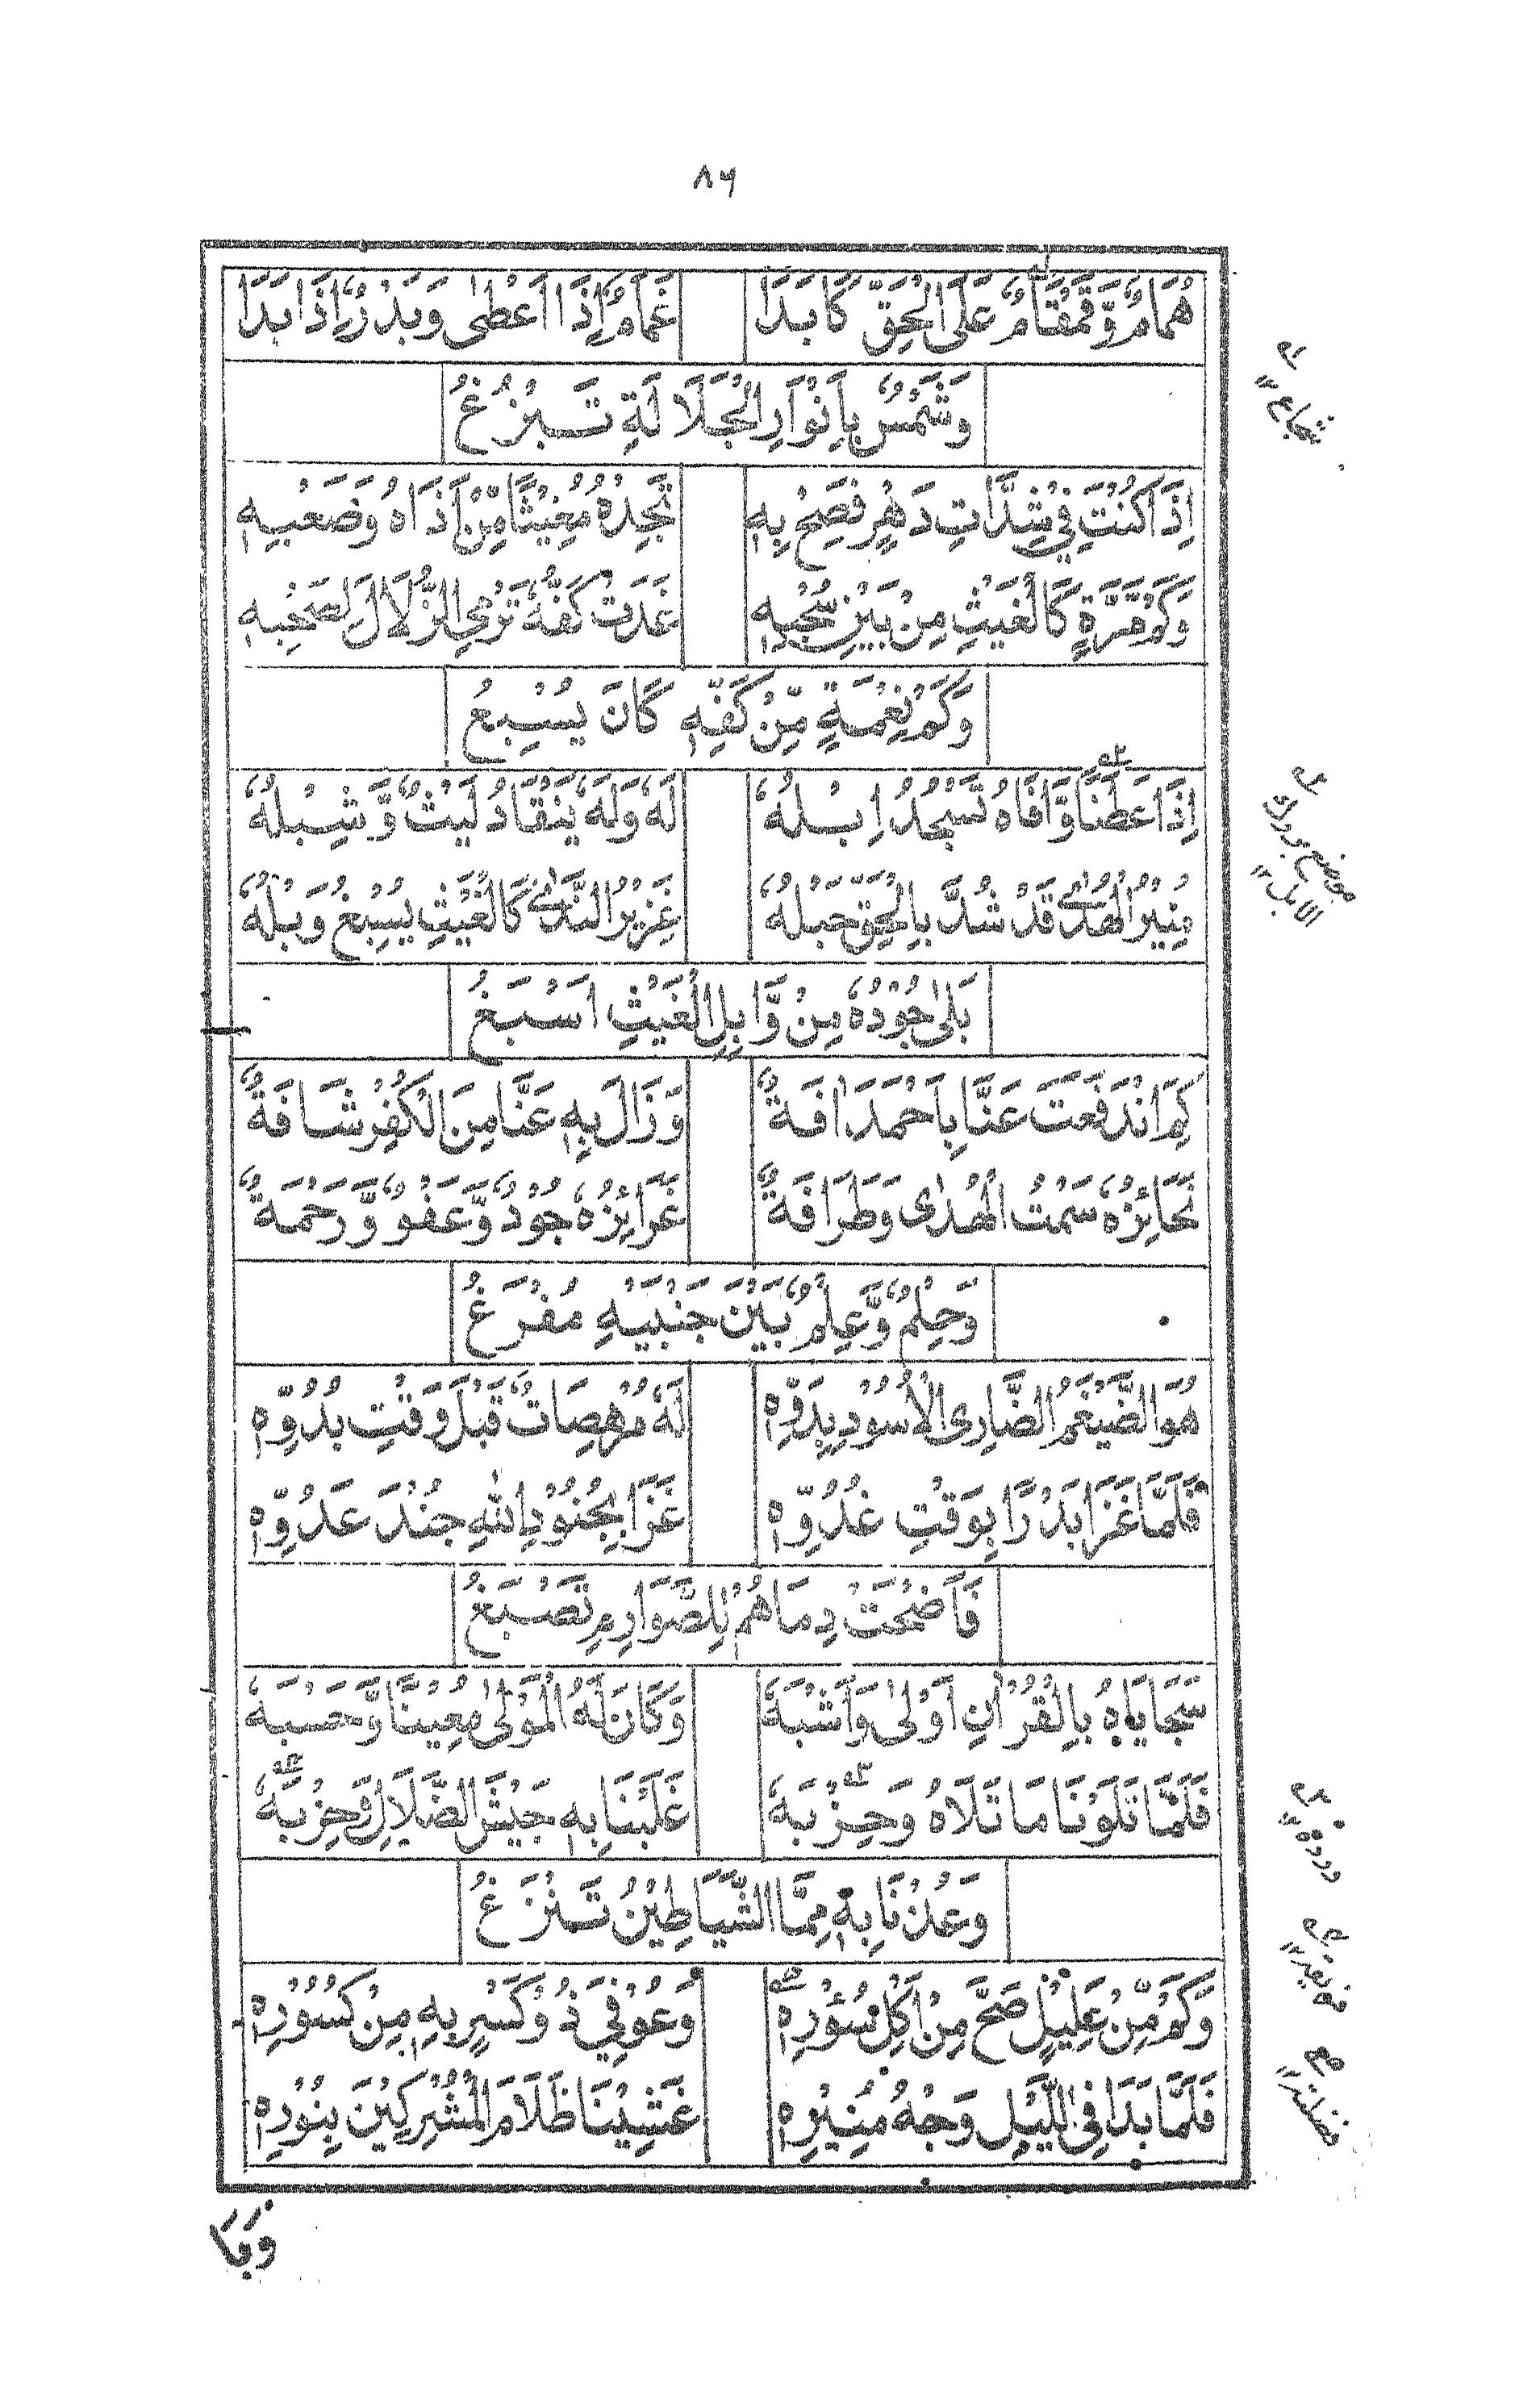 ٨٦
هُمَامٌ وَّقَمْقَامٌ عَلَى الْحَقِّ كَابَدَا غَمَامٌ اِذَا اَعْطٰى وَبَدْرٌ اِذَا بَدَا
وَشَمْسٌ بِاَنْوَارِ الْجَلَالَةِ تَبْزُغُ
اِذَا كُنْتَ فِيْ شِدَّاتِ دَهْرٍ فَصِحْ بِهٖ تَجِدْهُ مُغِيْثًا مِّنْ اَذَاهُ وَصَعْبِهٖ
وَكَمْ مَرَّةٍ كَالْغَيْثِ مِنْ بَيْنِ سُحْبِهٖ غَدَتْ كَفُّهٗ تَرْمِي الزُّلَالَ لِصَحْبِهٖ
وَكَمْ نِعْمَةٍ مِّنْ كَفِّهٖ كَانَ يُسْبِغُ
اِذَا عَطَنًا وَّافَاهُ تَسْجُدُ اِبْلُهٗ لَهٗ وَلَهٗ يَنْقَادُ لَيْثٌ وَّشِبْلُهٗ
مُنِيْرُ الْهُدٰى قَدْ شُدَّ بِالْحَقِّ حَبْلُهٗ غَزِيْرُ النَّدٰى كَالْغَيْثِ يُسْبِغُ وَبْلُهٗ
بَلٰى جُوْدُهٗ مِنْ وَّابِلِ الْغَيْثِ اَسْبَغُ
كَمِ انْدَفَعَتْ عَنَّا بِاَحْمَدَ اٰفَةٌ وَزَالَ بِهٖ عَنَّا مِنَ الْكُفْرِ شَافَةٌ
نَحَائِزُهٗ سَمْتُ الْهُدٰى وَطَرَافَةٌ غَرَائِزُهٗ جُوْدٌ وَّعَفْوٌ وَّرَحْمَةٌ
وَحِلْمٌ وَّعِلْمٌ بَيْنَ جَنْبَيْهِ مُفْرَغُ
هُوَ الضَّيْغَمُ الضَّارِى الْاُسُوْدِ بِدَوِّهٖ لَهٗ مُرْهِصَاتٌ قَبْلَ وَقْتِ بُدُوِّهٖ
فَلَمَّا غَزَا بَدْرًا بِوَقْتِ غُدُوِّهٖ غَزَا بِجُنُوْدِ اللّٰهِ جُنْدَ عَدُوِّهٖ
فَاَضْحَتْ دِمَاهُمْ لِلصَّوَارِمِ تَصْبَغُ
سَجَايَاهُ بِالْقُرْاٰنِ اَوْلٰى وَاَشْبَهٗ وَكَانَ لَهُ الْمَوْلٰى مُعِيْنًا وَّحَسْبَهٗ
فَلَمَّا تَلَوْنَا مَا تَلَاهُ وَحِزْبَهٗ غَلَبْنَا بِهٖ جَيْشَ الضَّلَالِ وَحِزْبَهٗ
وَعُذْنَا بِهٖ مِمَّا الشَّيَاطِيْنُ تَنْزَغُ
وَكَمْ مِّنْ عَلِيْلٍ صَحَّ مِنْ اَكْلِ سُؤْرِهٖ وَعُوْفِيَ ذُوْ كَسْرٍ بِهٖ مِنْ كُسُوْرِهٖ
فَلَمَّا بَدَا فِى اللَّيْلِ وَجْهُ مُنِيْرِهٖ غَشِيْنَا ظَلَامَ الْمُشْرِكِيْنَ بِنُوْرِهٖ
شجاع
موضع بروك الابل
وردہ